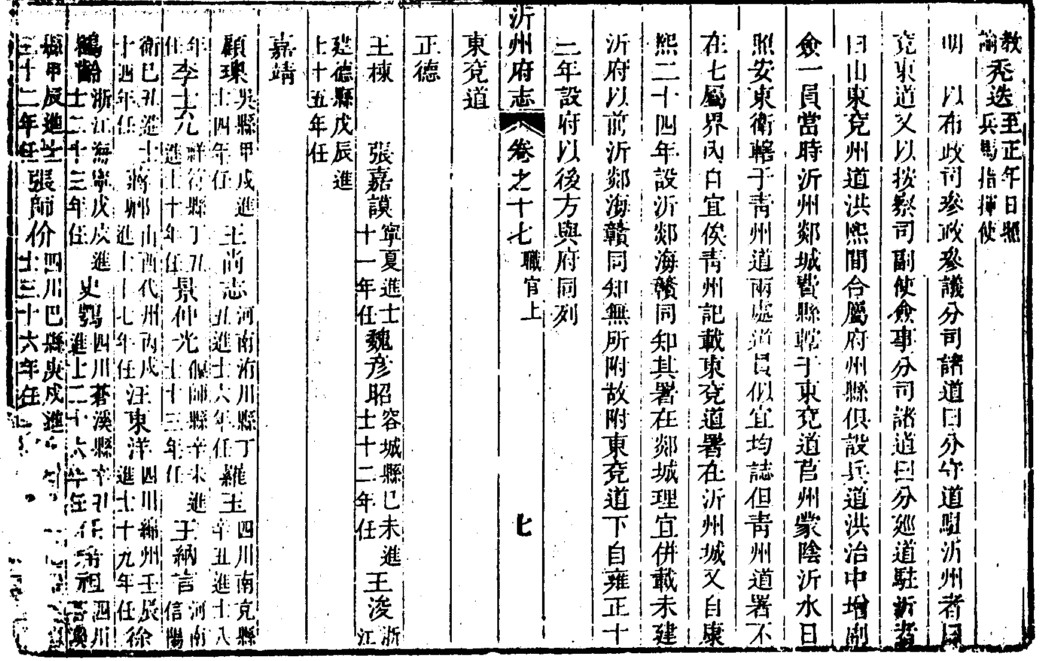 教禿迭至正年日照
兵馬指揮使
明 以布政司參政參議分司諸道曰分守道駐沂州者曰
兗東道又以按察司副使僉事分司諸道曰分廵道駐沂者
曰山東兗州道洪熙間合屬府州縣俱設兵道洪治中增副
僉一員當時沂州郯城費縣轄于東兗道莒州蒙陰沂水日
照安東衛轄于青州道兩處道員似宜均誌但青州道署不
在七屬界內自宜俟青州記載東兗道署在沂州城又自康
熙二十四年設沂郯海贛同知其署在郯城理宜併載未建
沂府以前沂郯海贛同知無所附故附東兗道下自雍正十
二年設府以後方與府同列
沂州府志 卷之十七 職官上 七
東兗道
正德
王棟 張嘉謨 寧夏進士十一年任 魏彥昭 容城縣已未進士十二年任 王浚 浙江
建德縣戊辰進士十五年任
嘉靖
顧 吳縣甲戌進士四年任 王尚志 河南洧川縣丁丑進士六年任 羅玉 四川南充縣辛丑進士八
年任 李士元 祥符縣丁丑進士十年任 景仲光 偃師縣辛未進士十三年任 王納言 河南信陽
衛巳丑進士十四年任 山西代州丙戌進士十七年任 汪東洋 四川綿州壬辰進士十九年任 徐
鶴齡 浙江海寧戊戌進士二十三年任 史鶚 四川蒼溪縣進士二十六年任 四川
縣甲辰進士三十二年任 張師价 四川巴縣庚戌進士三十六年任